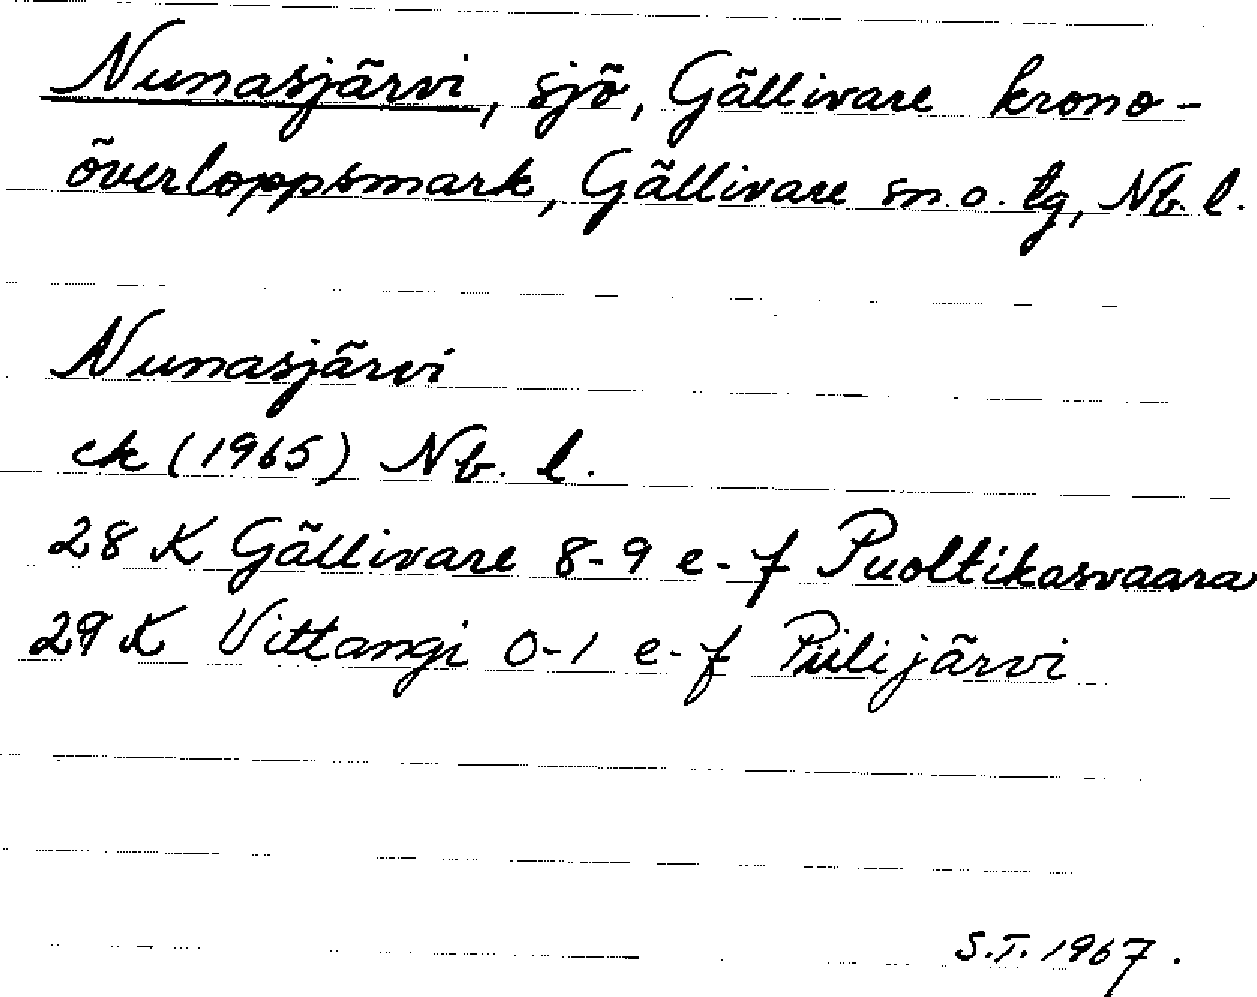 Nunasjärvi, sjö, Gällivare krono-
överloppsmark, Gällivare sn.o. lg, Nb. l.
Nunasjärvi
ek (1965) Nb. l.
28 K Gällivare 8-9 e-f Puoltikasvaara
29 K Vittangi 0-1 e-f Piilijärvi
S.T. 1967.